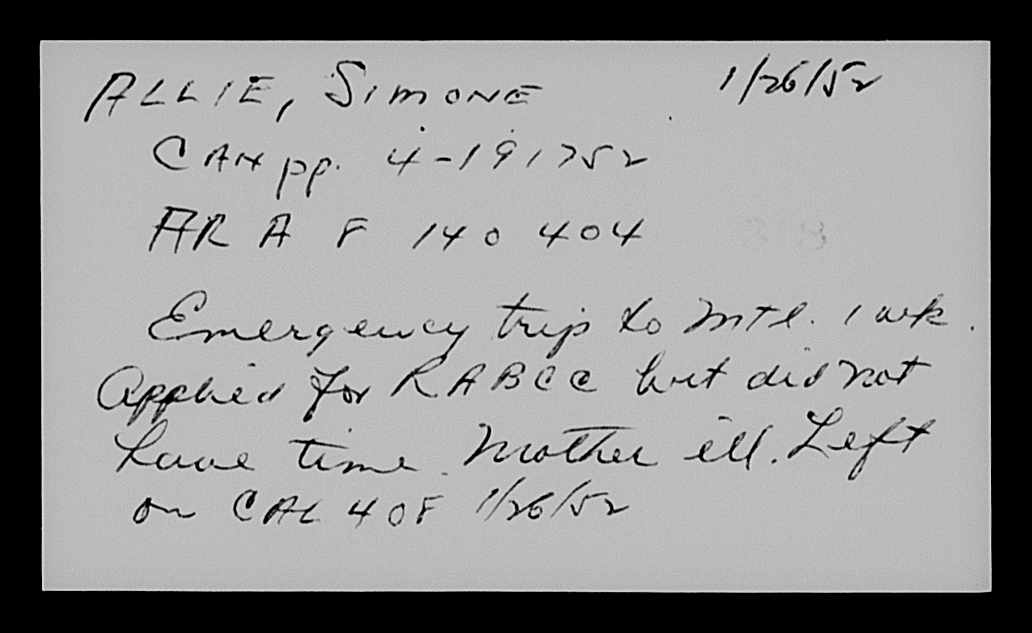 ALLIE, SIMONE 1/26/52
CAN pp. 4-191752
AR A F 140 404
Emergency trip to Mtl. 1 wk.
Applied for RABCC but did not
have time. Mother ill. Left
on CAL 408 1/26/52